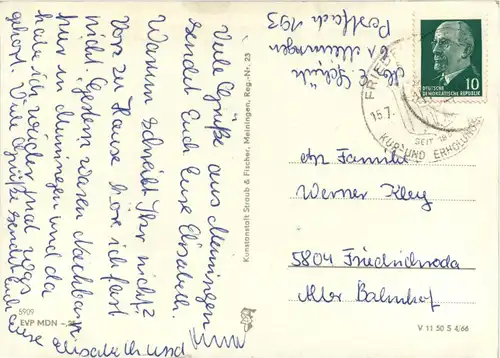 Viele Grüße aus Meiningen
sendet Euch Eure Elisabeth.
Warum schreibt Ihr nicht?
Von zu Hause hör ich fast
nicht. Gestern waren Nachbarn
hier in Meiningen und da
habe ich wieder mal was
gehört. Viele Grüße sendet Euch
Eure Elisabeth und
5909
EVP MDN –,25
Kunstanstalt Straub & Fischer, Meiningen, Reg.-Nr. 23
Meiningen
Postfach 193
10
DEUTSCHE
DEMOKRATISCHE REPUBLIK
FRIED
15.7.
SEIT 18
KUR- UND ERHOLUNGS
Familie
Werner Kley
5804 Friedrichroda
Alter Bahnhof
V 11 50 S 4/66